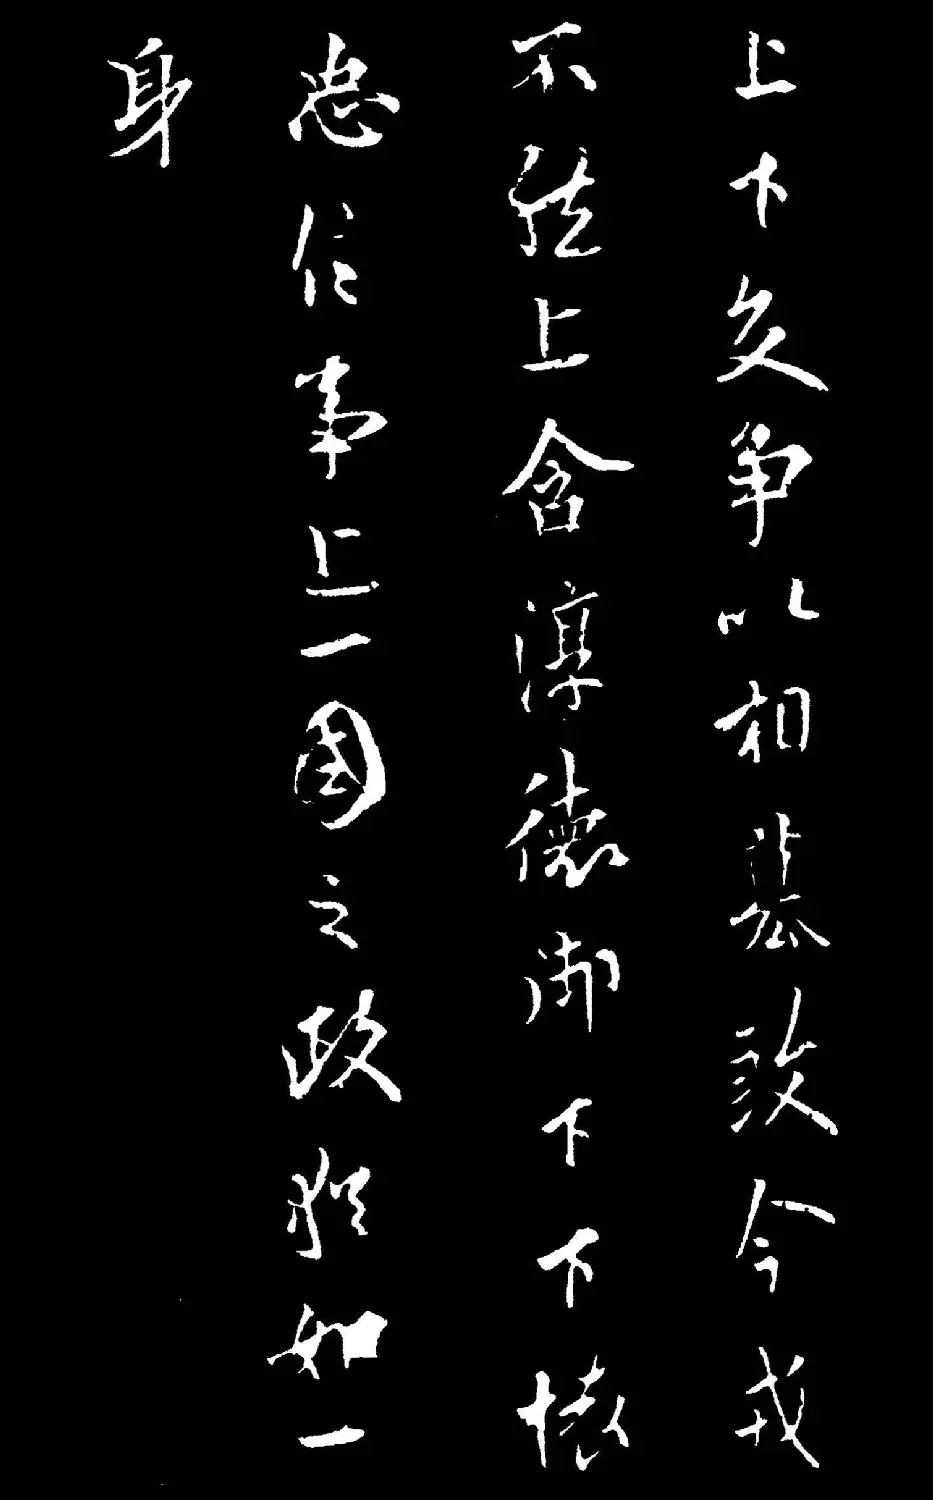 上下交争以相篡今戎
不然上含淳德御下下懷
忠信事上一國之政猶如一
身